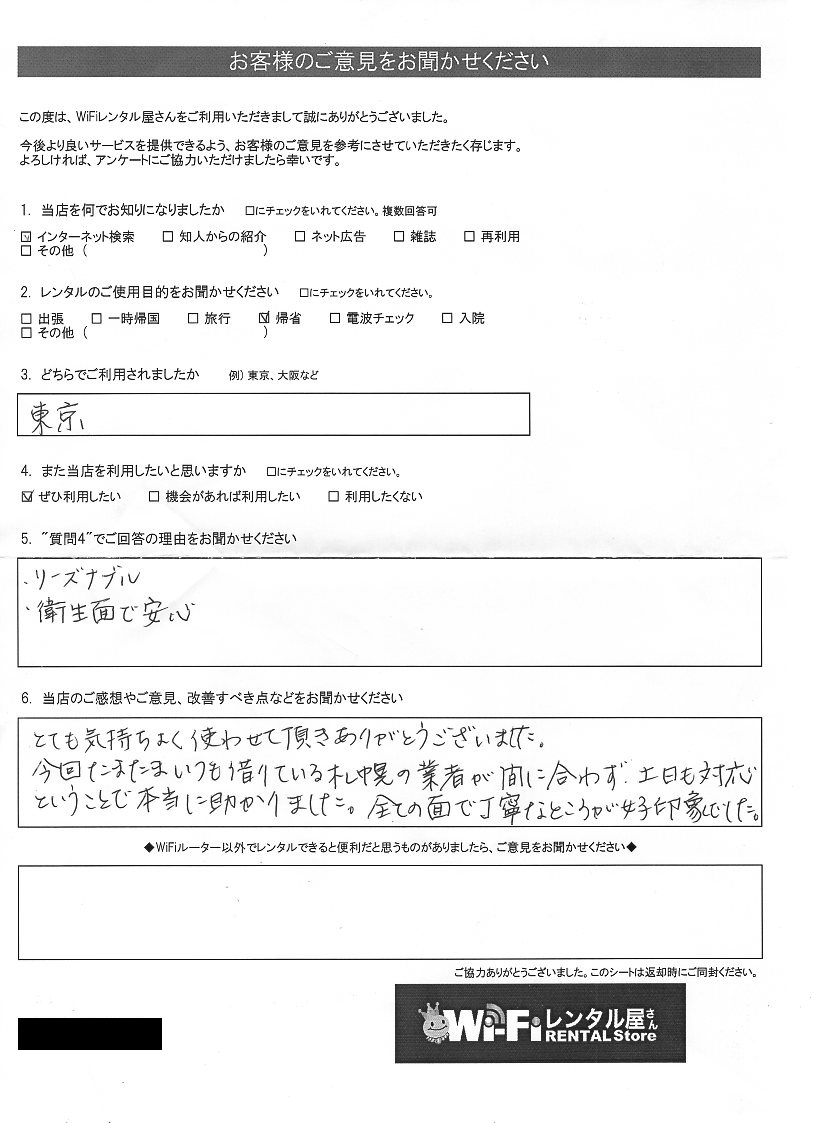 お客様のご意見をお聞かせください
この度は、WiFiレンタル屋さんをご利用いただきまして誠にありがとうございました。
今後より良いサービスを提供できるよう、お客様のご意見を参考にさせていただきたく存じます。
よろしければ、アンケートにご協力いただけましたら幸いです。
1. 当店を何でお知りになりましたか □にチェックをいれてください。複数回答可
☑ インターネット検索 □ 知人からの紹介 □ ネット広告 □ 雑誌 □ 再利用
□ その他 ( )
2. レンタルのご使用目的をお聞かせください □にチェックをいれてください。
□ 出張 □ 一時帰国 □ 旅行 ☑ 帰省 □ 電波チェック □ 入院
□ その他 ( )
3. どちらでご利用されましたか 例) 東京、大阪など
東京
4. また当店を利用したいと思いますか □にチェックをいれてください。
☑ ぜひ利用したい □ 機会があれば利用したい □ 利用したくない
5. "質問4"でご回答の理由をお聞かせください
・リーズナブル
・衛生面で安心
6. 当店のご感想やご意見、改善すべき点などをお聞かせください
とても気持ちよく使わせて頂きありがとうございました。
今回たまたまいつも借りている札幌の業者が間に合わず、土日も対応
ということで本当に助かりました。全ての面で丁寧なところが好印象でした。
◆WiFiルーター以外でレンタルできると便利だと思うものがありましたら、ご意見をお聞かせください◆
ご協力ありがとうございました。このシートは返却時にご同封ください。
Wi-Fiレンタル屋さん
RENTAL Store